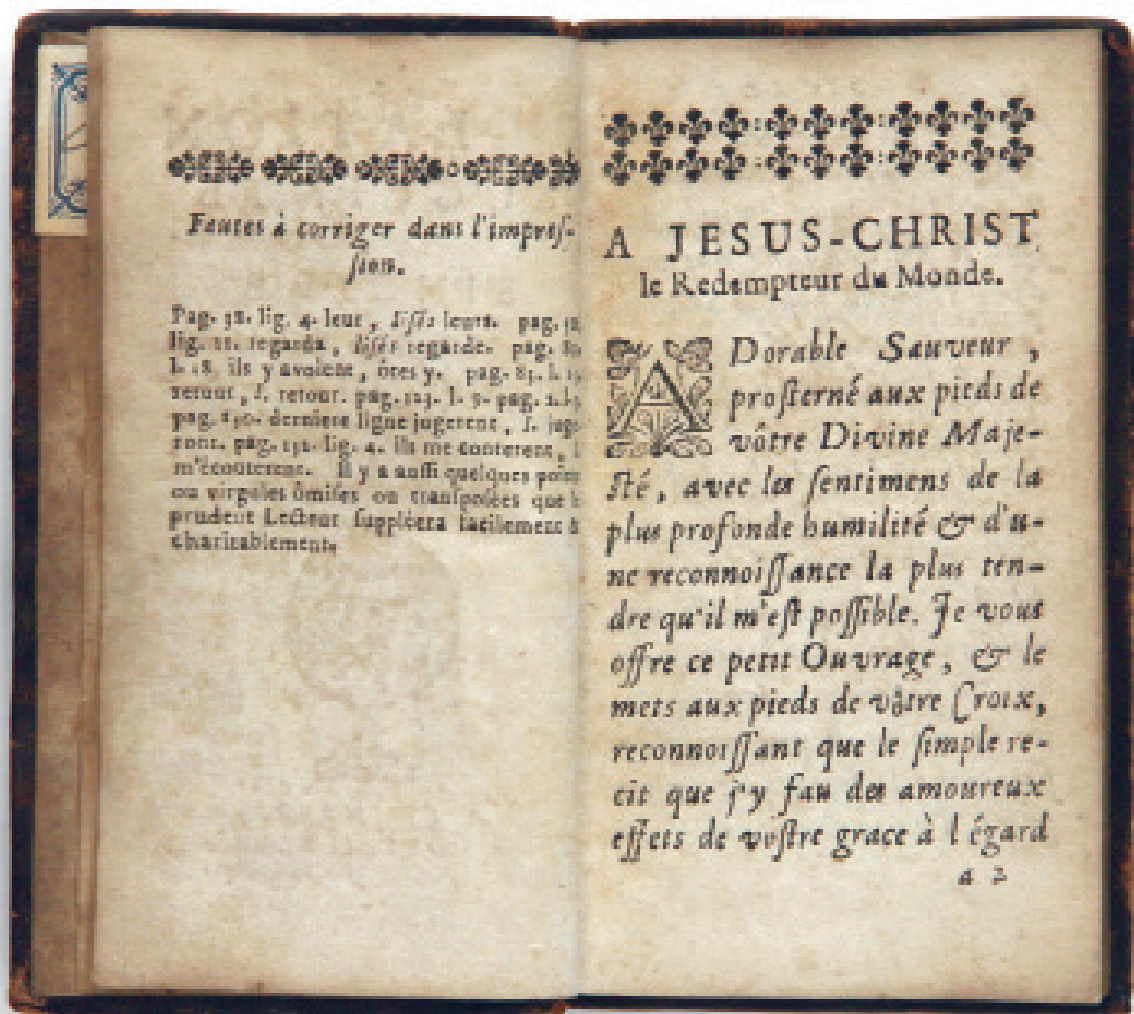 Fautes à corriger dans l'impres-
sion.
Pag. lig. 4. leur, lisés leurs. pag.
lig. 11. regarda, lisés regarde. pag.
l. 18. ils y avoient, ôtes y. pag. 83. l.
retour. pag. 123. l. 9. pag. 2. l.
pag. derniere ligne jugerent, l.
ront. pag. lig. 4. ils me conterent,
m'écouterent. Il y a aussi quelques
ou virgules ômises ou transposées que
prudent Lecteur suppléera facilement &
charitablement.
A JESUS-CHRIST
le Redempteur du Monde.
ADorable Sauveur,
prosterné aux pieds de
vôtre Divine Maje-
sté, avec les sentimens de la
plus profonde humilité & d'u-
ne reconnoissance la plus ten-
dre qu'il m'est possible. Je vous
offre ce petit Ouvrage, & le
mets aux pieds de vôtre Croix,
reconnoissant que le simple re-
cit que j'y fais des amoureux
effets de vostre grace à l'égard
a 2